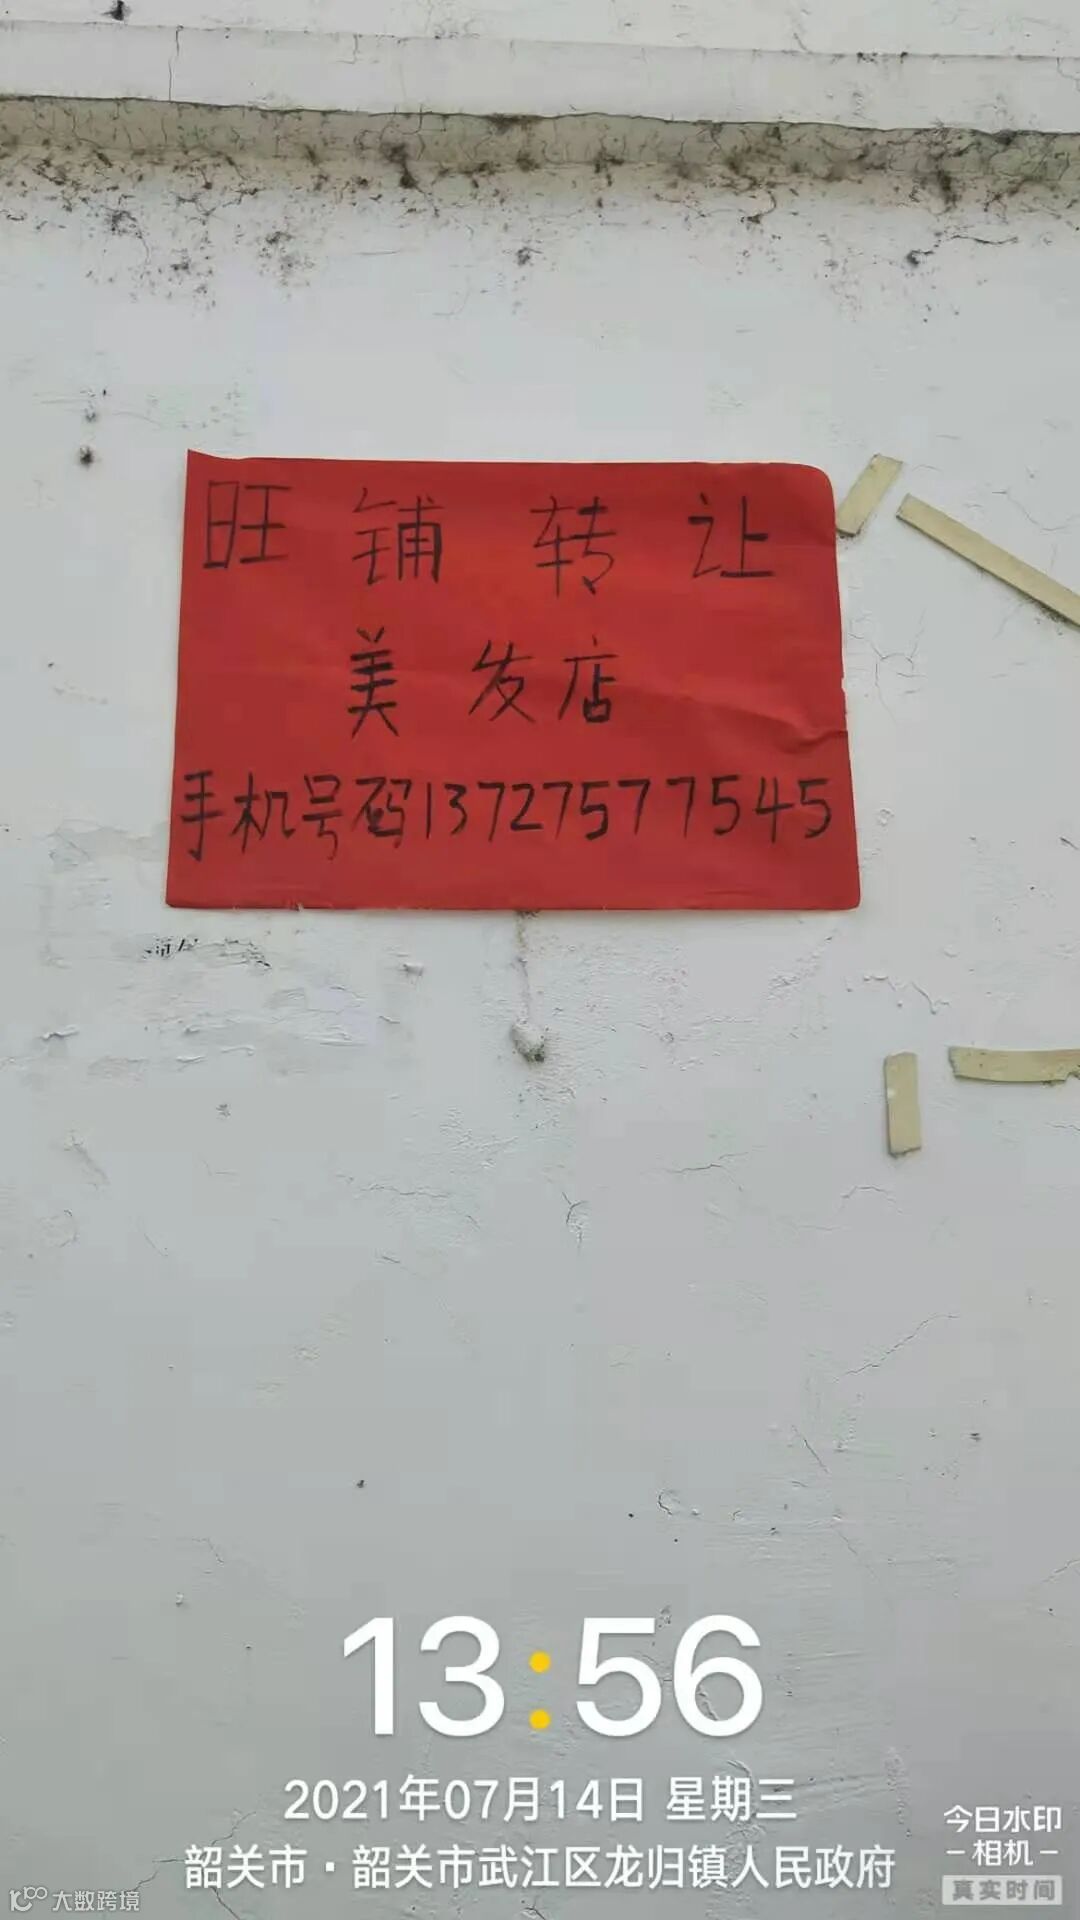 旺铺转让
美发店
手机号码13727577545
13:56
2021年07月14日 星期三
韶关市·韶关市武江区龙归镇人民政府
今日水印
-相机-
真实时间
大数跨境